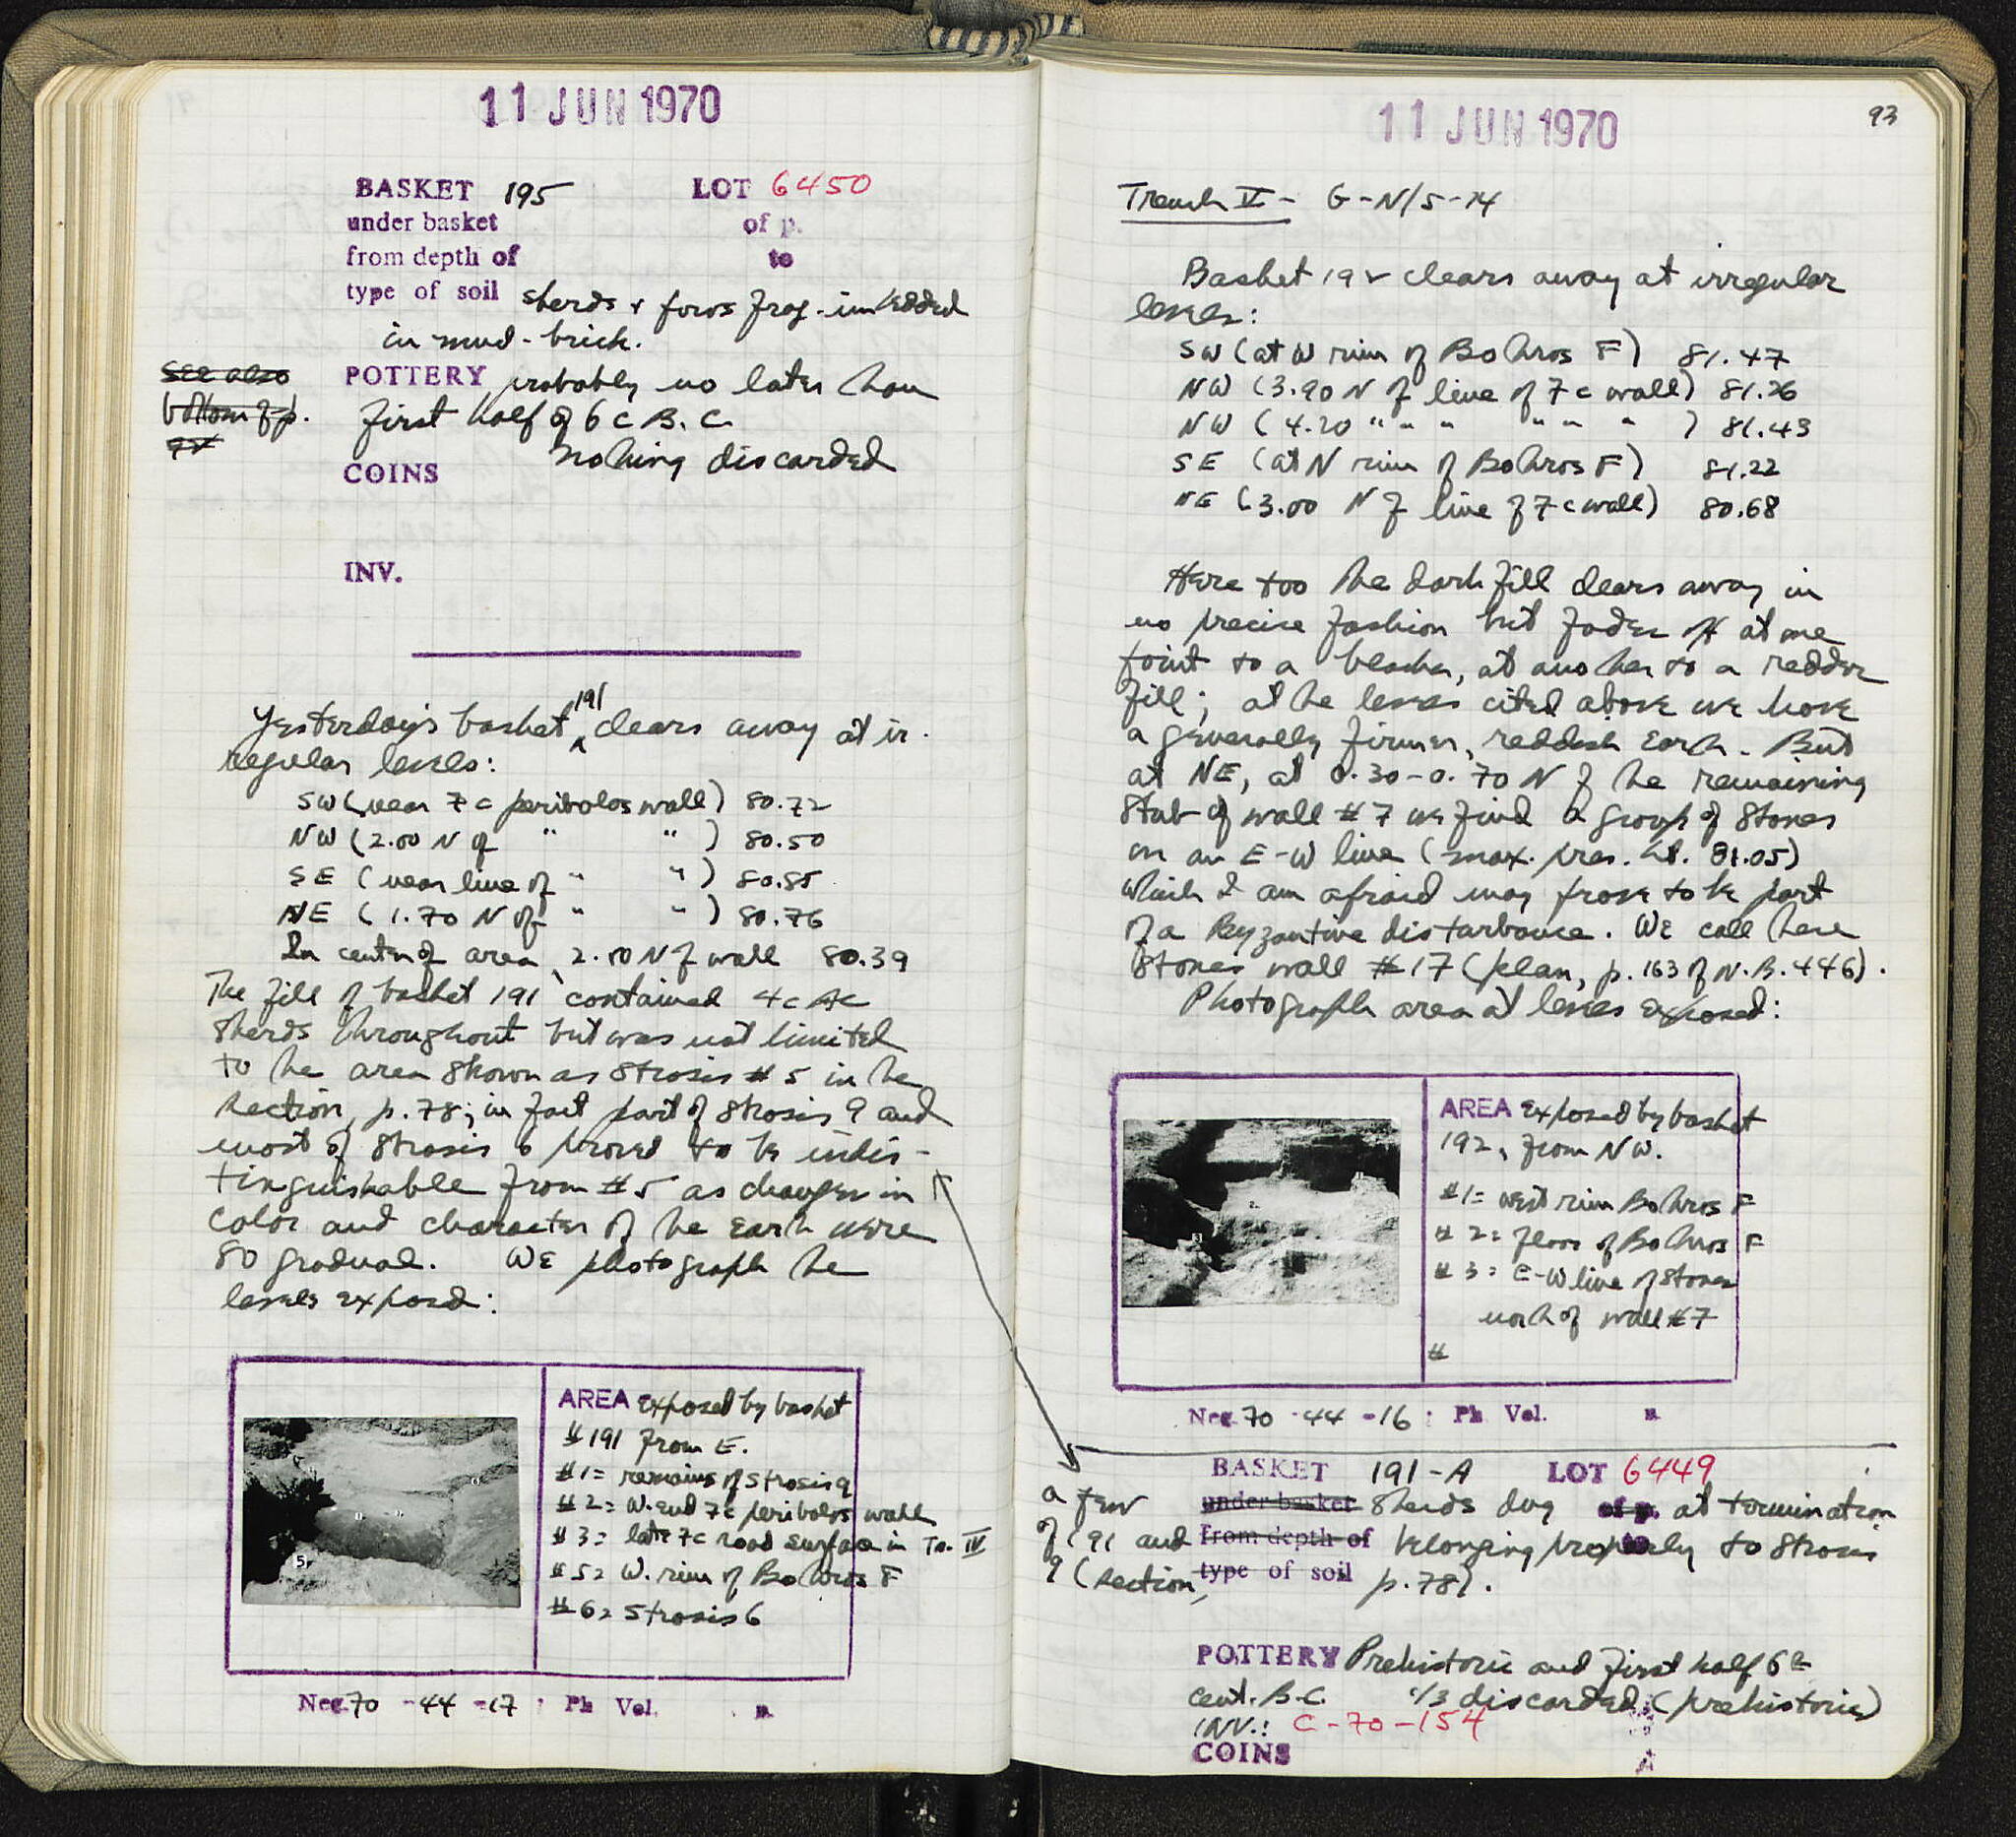 11 JUN 1970
BASKET 195 LOT 6450
under basket of p.
from depth of to
type of soil sherds + furos frag. imbedded
in mud-brick.
See also
bottom of p.
POTTERY probably no later than
first half of 6 c B.C.
nothing discarded
COINS
INV.
Yesterday's basket 191 clears away at ir-
regular levels:
SW (near 7c peribolos wall) 80.72
NW (2.00 N of " " ) 80.50
SE (near line of " " ) 80.85
NE (1.70 N of " " ) 80.76
In center of area, 2.00 N of wall 80.39
The fill of basket 191 contained 4c AC
sherds throughout but was not limited
to the area shown as Strosis #5 in the
section, p. 78; in fact part of strosis 9 and
most of strosis 6 proved to be indis-
tinguishable from #5 as changes in
color and character of the earth were
so gradual. We photograph the
levels exposed:
AREA exposed by basket
#191 from E.
#1= remains of strosis 9
#2= W. end 7c peribolos wall
#3= late 7c road surface in Tr. IV
#5= W. rim of Bothros F
#6= Strosis 6
5
Neg. 70 -44 -17 ; Ph Vol. p.
11 JUN 1970
93
Trench V - G-N/5-14
Basket 192 clears away at irregular
levels:
SW (at W rim of Bothros F) 81.47
NW (3.90 N of line of 7c wall) 81.26
NW (4.20 " " " " " " ) 81.43
SE (at N rim of Bothros F) 81.22
NE (3.00 N of line of 7c wall) 80.68
Here too the dark fill clears away in
no precise fashion but fades off at one
point to a blacker, at another to a redder
fill; at the levels cited above we have
a generally firmer, reddish earth. But
at NE, at 0.30-0.70 N of the remaining
stub of wall #7 we find a group of stones
on an E-W line (max. pres. ht. 81.05)
which I am afraid may prove to be part
of a Byzantine disturbance. We call these
stones wall #17 (plan, p. 163 of N.B. 446).
Photograph area at levels exposed:
AREA exposed by basket
192, from NW.
#1= west rim Bothros F
#2= floor of Bothros F
#3= E-W line of stones
north of wall #7
#
Neg. 70 -44 -16 ; Ph Vol. p.
BASKET 191-A LOT 6449
a few under basket sherds dug of p. at termination
of 191 and from depth of belonging properly to strosis
9 (section, type of soil p. 78).
POTTERY Prehistoric and first half 6th
cent. B.C. 1/3 discarded (prehistoric)
INV.: C-70-154
COINS